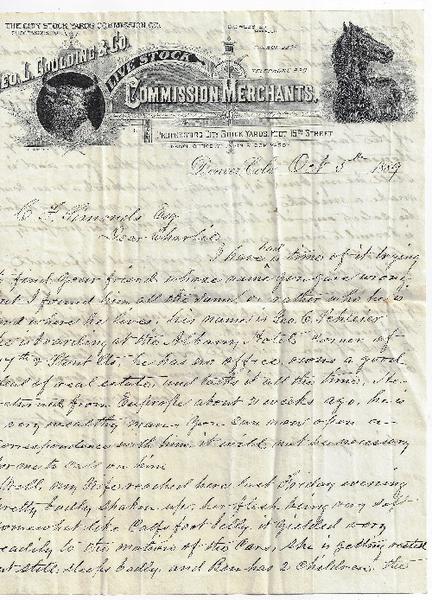 THE CITY STOCK YARDS COMMISSION CO.
GEO. L. GOULDING & CO.
LIVE STOCK
COMMISSION MERCHANTS.
CITY STOCK YARDS, FOOT 15TH STREET
Denver, Colo Oct 5th 1889
C. F. Simonds Esq
Dear Charlie
I have had a time of it trying
find your friend whose name you gave wrong
but I found him all the same, or rather who he is
and where he lives, his name is Geo. C. Schleier
he is boarding at the Albany Hotel corner of
& Stout Sts, he has no office, owns a good
deal of real estate, and looks it all the time, Re-
turned from Europe about 2 weeks ago, he is
very wealthy man. You can now open a
correspondence with him, it will not be necessary
for me to call on him
Well, my Wife reached here last Friday evening
pretty badly shaken up, her flesh being very soft
somewhat like Calfs foot jelly, it yielded very
readily to the motion of the Cars, she is getting rested
but still sleeps badly, and has 2 Children, the